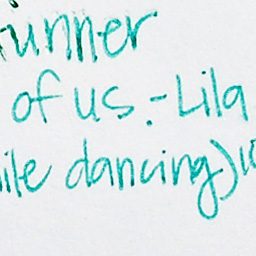 unner
of us. - Lila
ile dancing)